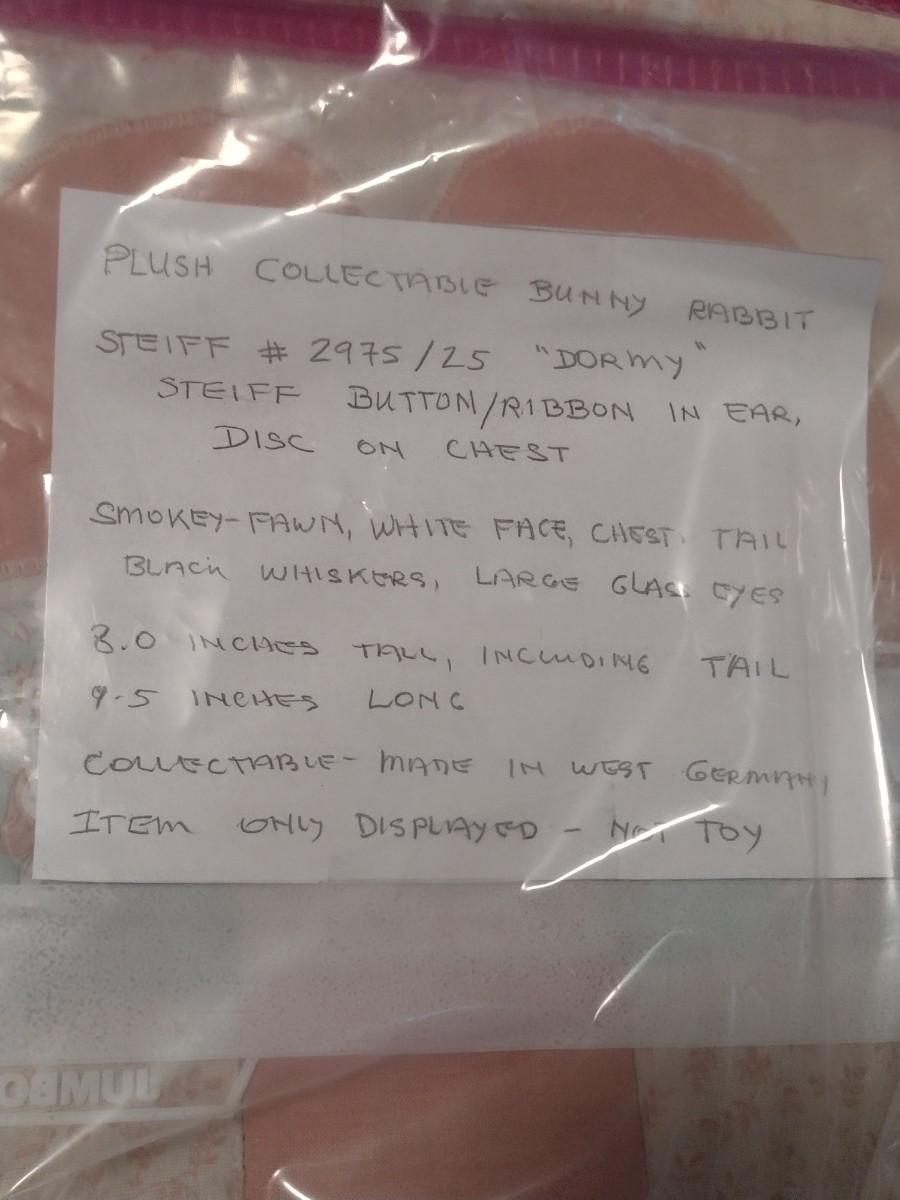 PLUSH COLLECTABLE BUNNY RABBIT
STEIFF # 2975/25 "DORMY"
STEIFF BUTTON/RIBBON IN EAR,
DISC ON CHEST
SMOKEY-FAWN, WHITE FACE, CHEST, TAIL
BLACK WHISKERS, LARGE GLASS EYES
8.0 INCHES TALL, INCLUDING TAIL
9.5 INCHES LONG
COLLECTABLE - MADE IN WEST GERMANY
ITEM ONLY DISPLAYED - NOT TOY
JUMBO